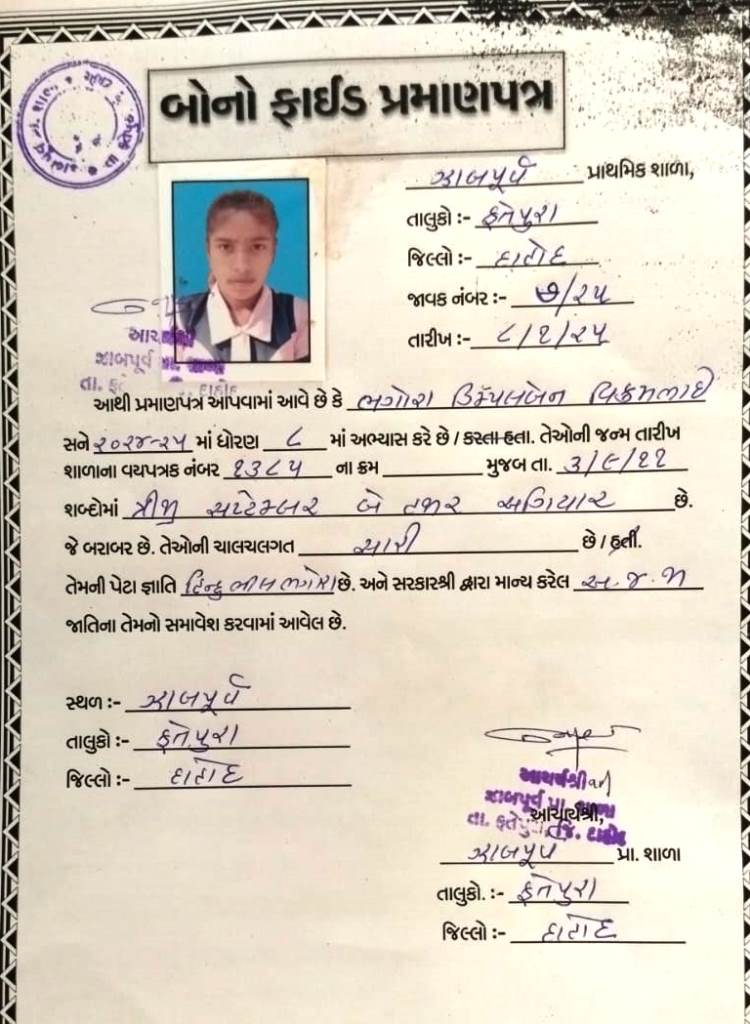 બોનો ફાઈડ પ્રમાણપત્ર
ઝાબપૂર્વ પ્રાથમિક શાળા,
તાલુકો :- ફતેપુરા
જિલ્લો :- દાહોદ
જાવક નંબર :- ૭/૨૫
તારીખ :- ૮/૧/૨૫
ઝાબપૂર્વ પ્રા. શાળા
આથી પ્રમાણપત્ર આપવામાં આવે છે કે ભગોરા ડિમ્પલબેન વિક્રમભાઈ
સને ૨૦૨૪-૨૫ માં ધોરણ ૮ માં અભ્યાસ કરે છે / કરતા હતા. તેઓની જન્મ તારીખ
શાળાના વયપત્રક નંબર ૧૩૮૫ ના ક્રમ મુજબ તા. ૩/૯/૧૧
શબ્દોમાં ત્રીજી સપ્ટેમ્બર બે હજાર અગિયાર છે.
જે બરાબર છે. તેઓની ચાલચલગત સારી છે / હતી.
તેમની પેટા જ્ઞાતિ હિન્દુ ભીલ ભગોરા છે. અને સરકારશ્રી દ્વારા માન્ય કરેલ અ.જ.જા
જાતિના તેમનો સમાવેશ કરવામાં આવેલ છે.
સ્થળ :- ઝાબપૂર્વ
તાલુકો :- ફતેપુરા
જિલ્લો :- દાહોદ
આચાર્યશ્રી
ઝાબપૂર્વ પ્રા. શાળા
તા. ફતેપુરા, જિ. દાહોદ
આચાર્યશ્રી,
ઝાબપૂર્વ પ્રા. શાળા
તાલુકો. :- ફતેપુરા
જિલ્લો :- દાહોદ